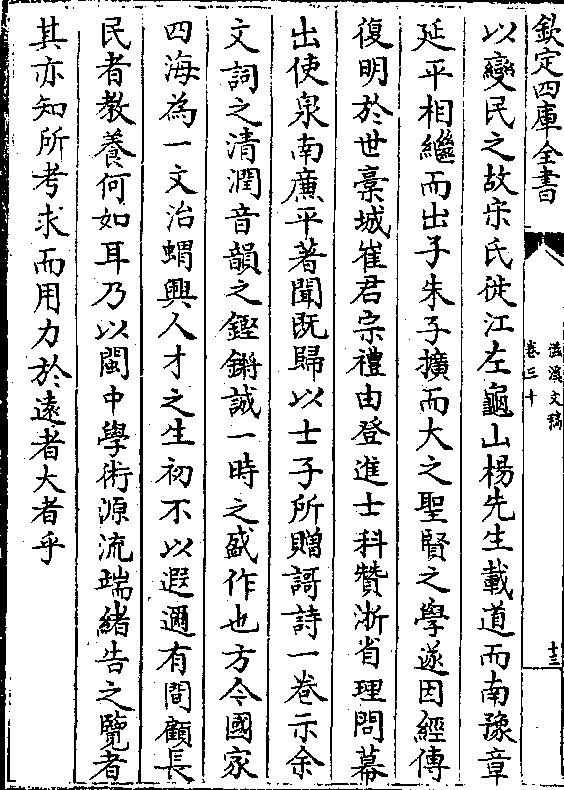 欽定四庫全書
滋溪文稿
卷三十
十三
以變民之故宋氏徙江左龜山楊先生載道而南豫章
延平相繼而出子朱子擴而大之聖賢之學遂因經傳
復明於世藁城崔君宗禮由登進士科贊浙省理問幕
出使泉南廉平著聞既歸以士子所贈謌詩一卷示余
文詞之清潤音韻之鏗鏘誠一時之盛作也方今國家
四海為一文治蝟興人才之生初不以遐邇有間顧長
民者教養何如耳乃以閩中學術源流端緒告之覽者
其亦知所考求而用力於遠者大者乎